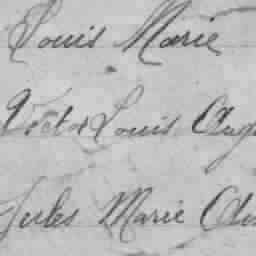 Louis Marie
Victor Louis Aug
Jules Marie